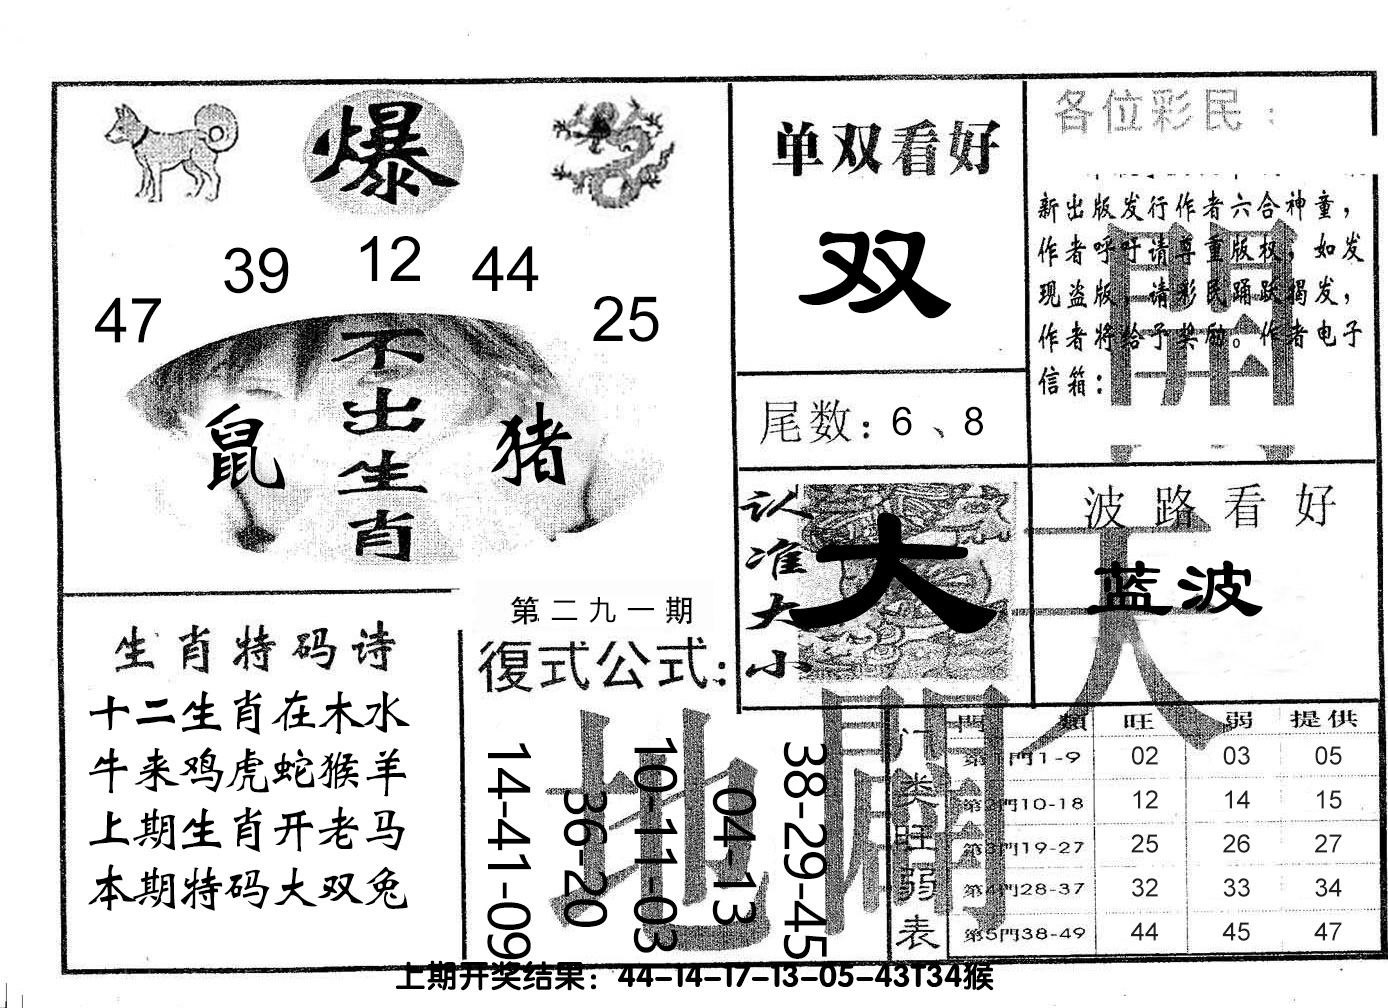 爆
39 12 44
47 25
不出生肖
鼠 猪
单双看好
双
尾数：6、8
各位彩民：
新出版发行作者六合神童，
作者呼吁请尊重版权，如发
现盗版，请彩民踊跃揭发，
作者将给予奖励。作者电子
信箱：
開
认准大小
大
波路看好
蓝波
天
生肖特码诗
十二生肖在木水
牛来鸡虎蛇猴羊
上期生肖开老马
本期特码大双兔
第二九一期
復式公式：
14-41-09
36-20
10-11-03
04-13
38-29-45
地
門类旺弱表
門類 旺 弱 提供
第1門1-9 02 03 05
第2門10-18 12 14 15
第3門19-27 25 26 27
第4門28-37 32 33 34
第5門38-49 44 45 47
上期开奖结果：44-14-17-13-05-43T34猴